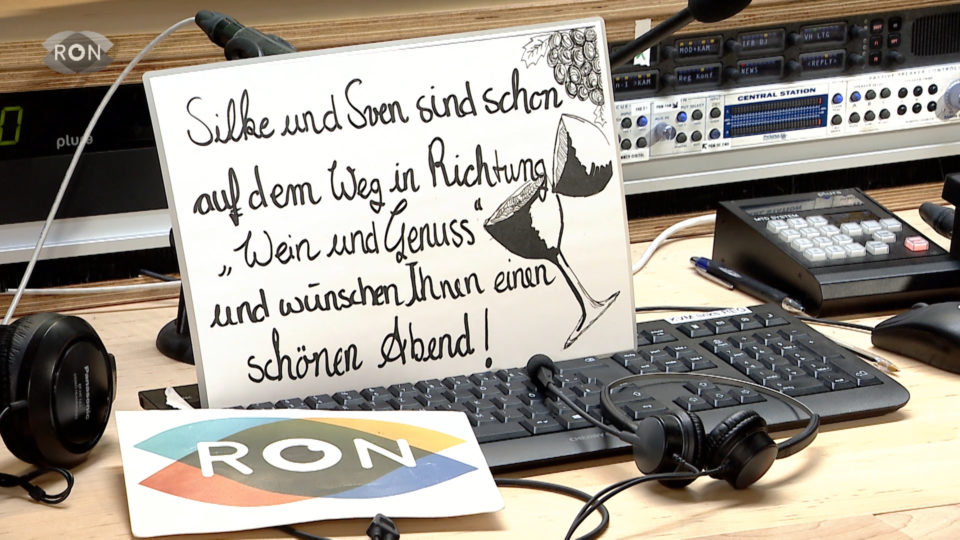 RON
Silke und Sven sind schon
auf dem Weg in Richtung
„Wein und Genuss“
und wünschen Ihnen einen
schönen Abend!
RON
0
plura
MOD+KAM
IFB DJ
VH LTG
Reg Konf
NEWS
<REPLY>
CENTRAL STATION
plura
MTD SYSTEM
Panasonic
CHERRY